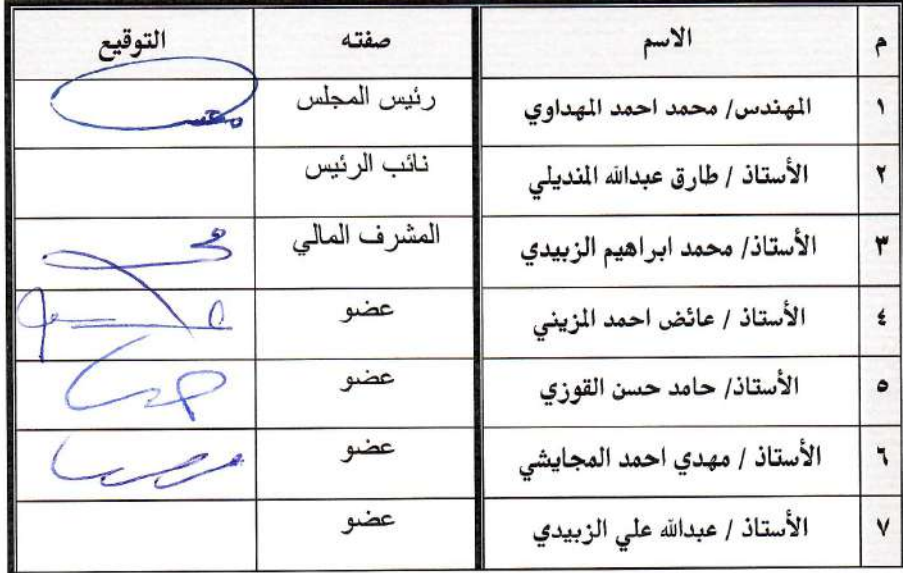 م الاسم صفته التوقيع
١ المهندس/ محمد احمد المهداوي رئيس المجلس
٢ الأستاذ / طارق عبدالله المنديلي نائب الرئيس
٣ الأستاذ/ محمد ابراهيم الزبيدي المشرف المالي
٤ الأستاذ / عائض احمد المزيني عضو
٥ الأستاذ/ حامد حسن القوزي عضو
٦ الأستاذ / مهدي احمد المجايشي عضو
٧ الأستاذ / عبدالله علي الزبيدي عضو